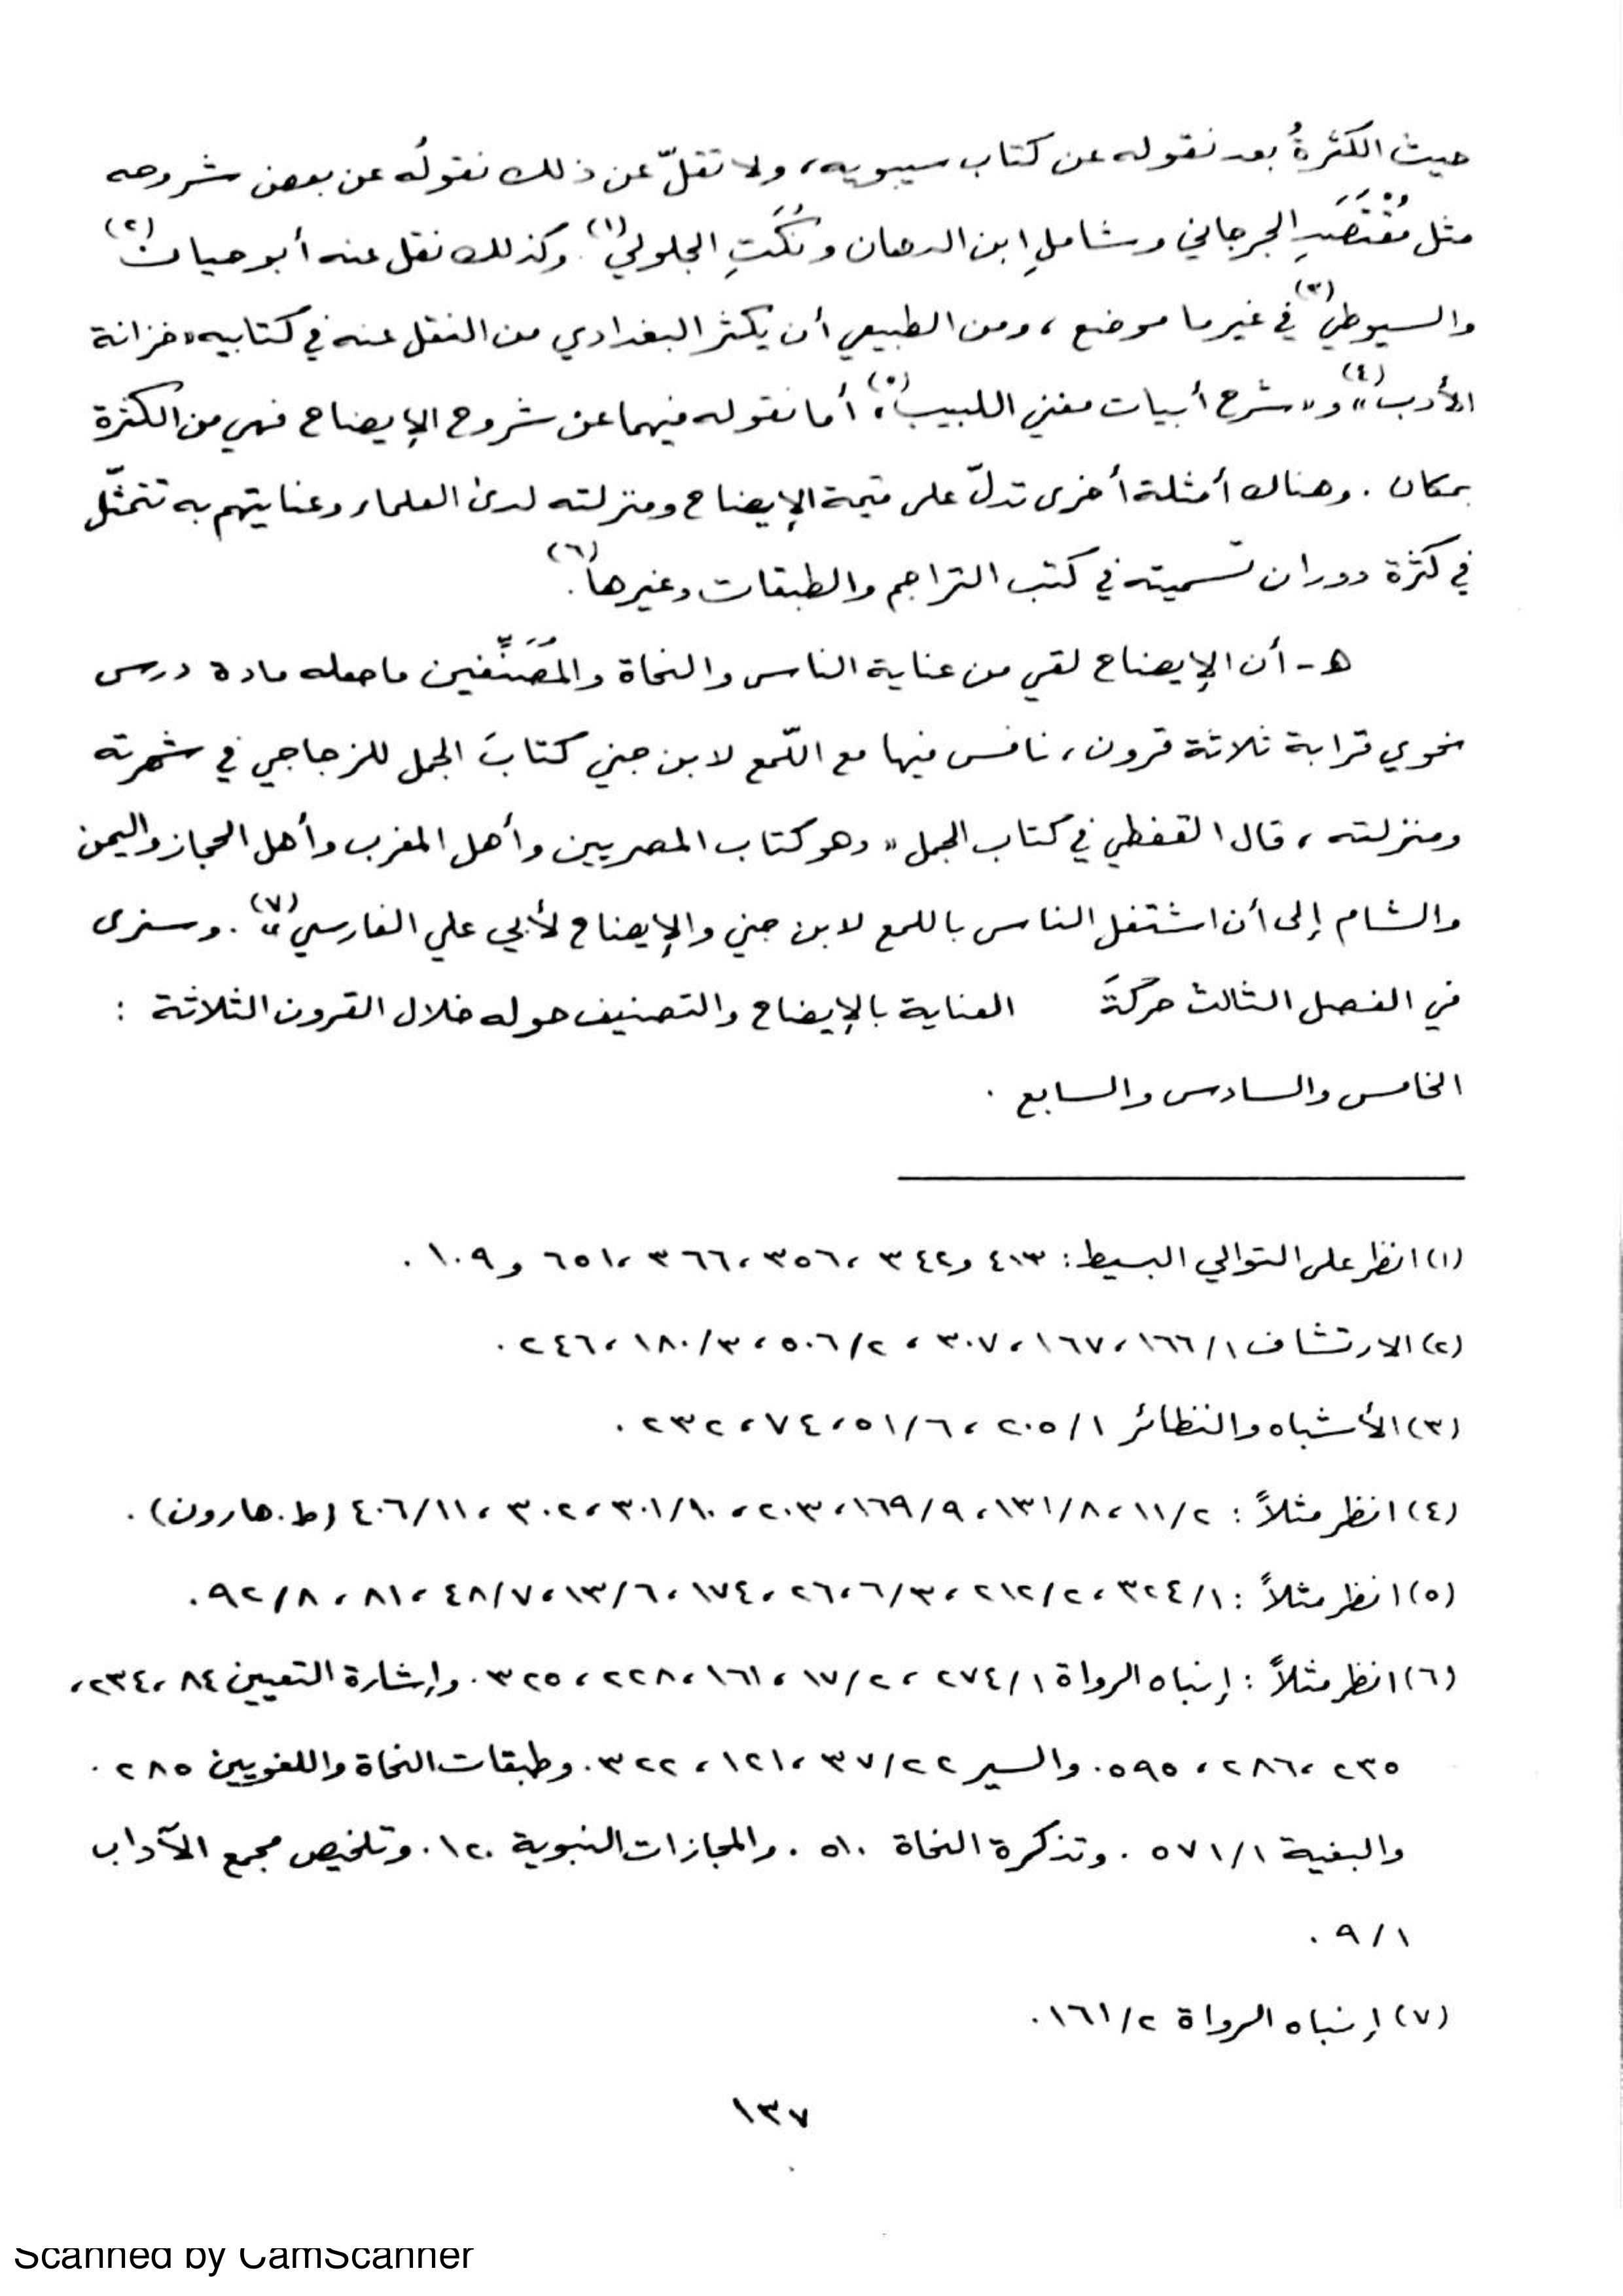 حيث الكثرةُ بعد نقوله عن كتاب سيبويه، ولا تقلّ عن ذلك نقولُه عن بعض شروحه
مثل مُقْتَصَدِ الجرجاني وشاملِ ابن الدهان ونُكَتِ الجلولي(١). وكذلك نقل عنه أبو حيان(٢)
والسيوطي(٣) في غير ما موضع، ومن الطبيعي أن يكثر البغدادي من النقل عنه في كتابيه «خزانة
الأدب»(٤) و«شرح أبيات مغني اللبيب»(٥)، أما نقوله فيهما عن شروح الإيضاح فهي من الكثرة
بمكان. وهناك أمثلة أخرى تدلّ على قيمة الإيضاح ومنزلته لدى العلماء وعنايتهم به تتمثّل
في كثرة دوران تسميته في كتب التراجم والطبقات وغيرها(٦).
هـ- أن الإيضاح لقي من عناية الناس والنحاة والمُصَنِّفين ما جعله مادة درس
نحوي قرابة ثلاثة قرون، نافس فيها مع اللّمع لابن جني كتابَ الجمل للزجاجي في شهرته
ومنزلته، قال القفطي في كتاب الجمل «وهو كتاب المصريين وأهل المغرب وأهل الحجاز واليمن
والشام إلى أن اشتغل الناس باللمع لابن جني والإيضاح لأبي علي الفارسي»(٧). وسنرى
في الفصل الثالث حركةَ العناية بالإيضاح والتصنيف حوله خلال القرون الثلاثة :
الخامس والسادس والسابع .
(١) انظر على التوالي البسيط: ٤١٣ و٣٤٢، ٣٥٦، ٣٦٦، ٦٥١ و ١٠٩ .
(٢) الارتشاف ١/ ١٦٦، ١٦٧، ٣٠٧، ٢/ ٥٠٦، ٣/ ١٨٠، ٢٤٦ .
(٣) الأشباه والنظائر ١/ ٢٠٥، ٦/ ٥١، ٧٤، ٢٣٢ .
(٤) انظر مثلاً : ٢/ ١١، ٨/ ١٣١، ٩/ ١٦٩، ٢٠٣، ١٠/ ٣٠١، ٣٠٢، ١١/ ٤٠٦ (ط. هارون) .
(٥) انظر مثلاً : ١/ ٣٢٤، ٢/ ٢١٢، ٣/ ٦، ٢٦، ١٧٤، ٦/ ١٣، ٧/ ٤٨، ٨١، ٨/ ٩٢ .
(٦) انظر مثلاً : إنباه الرواة ١/ ٢٧٤، ٢/ ١٧، ١٦١، ٢٢٨، ٣٢٥. وإشارة التعيين ٨٤، ٢٣٤،
٢٣٥، ٢٨٦، ٥٩٥. والسير ٢٢/ ٣٧، ١٢١، ٣٢٢. وطبقات النحاة واللغويين ٢٨٥ .
والبغية ١/ ٥٧١ . وتذكرة النحاة ٥١٠ . والمجازات النبوية ١٢٠. وتلخيص مجمع الآداب
١/ ٩ .
(٧) إنباه الرواة ٢/ ١٦١.
١٣٧
Scanned by CamScanner